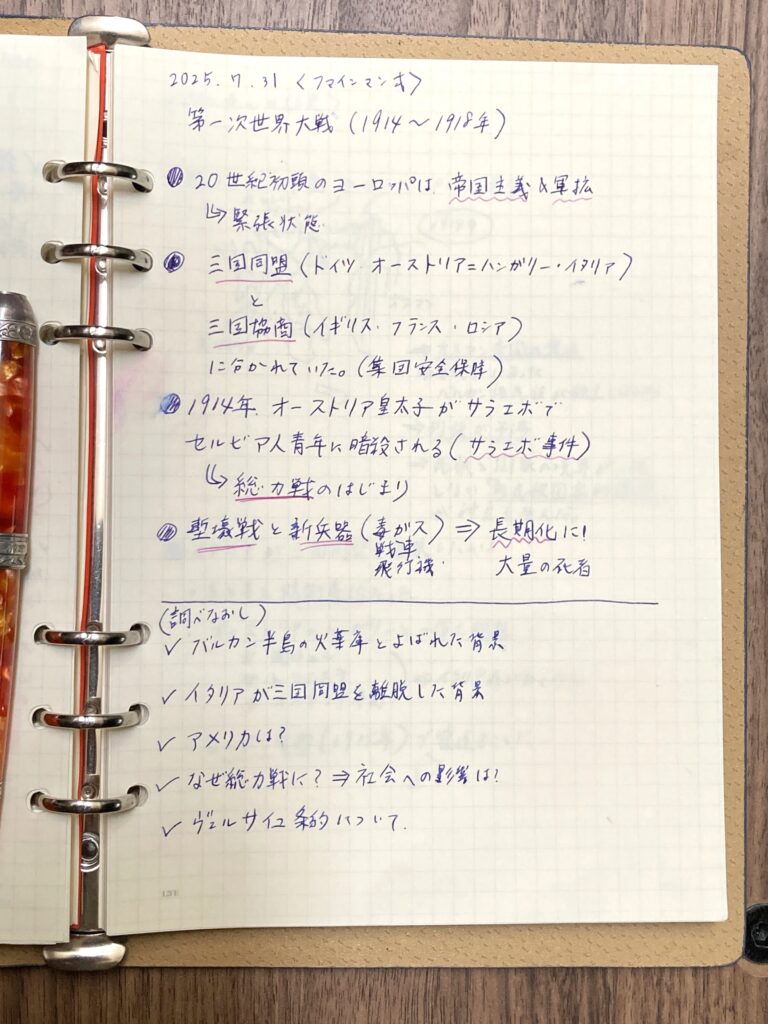 2025.7.31〈ファインマン式〉
第一次世界大戦(1914〜1918年)
20世紀初頭のヨーロッパは、帝国主義&軍拡
↳緊張状態
三国同盟(ドイツ・オーストリア=ハンガリー・イタリア)
と
三国協商(イギリス・フランス・ロシア)
に分かれていた。(集団安全保障)
1914年、オーストリア皇太子がサラエボで
セルビア人青年に暗殺される(サラエボ事件)
↳総力戦のはじまり
塹壕戦と新兵器(毒ガス)⇒長期化に!
戦車
飛行機
大量の死者
(調べなおし)
✓バルカン半島の火薬庫とよばれた背景
✓イタリアが三国同盟を離脱した背景
✓アメリカは?
✓なぜ総力戦に?⇒社会への影響は?
✓ヴェルサイユ条約について.